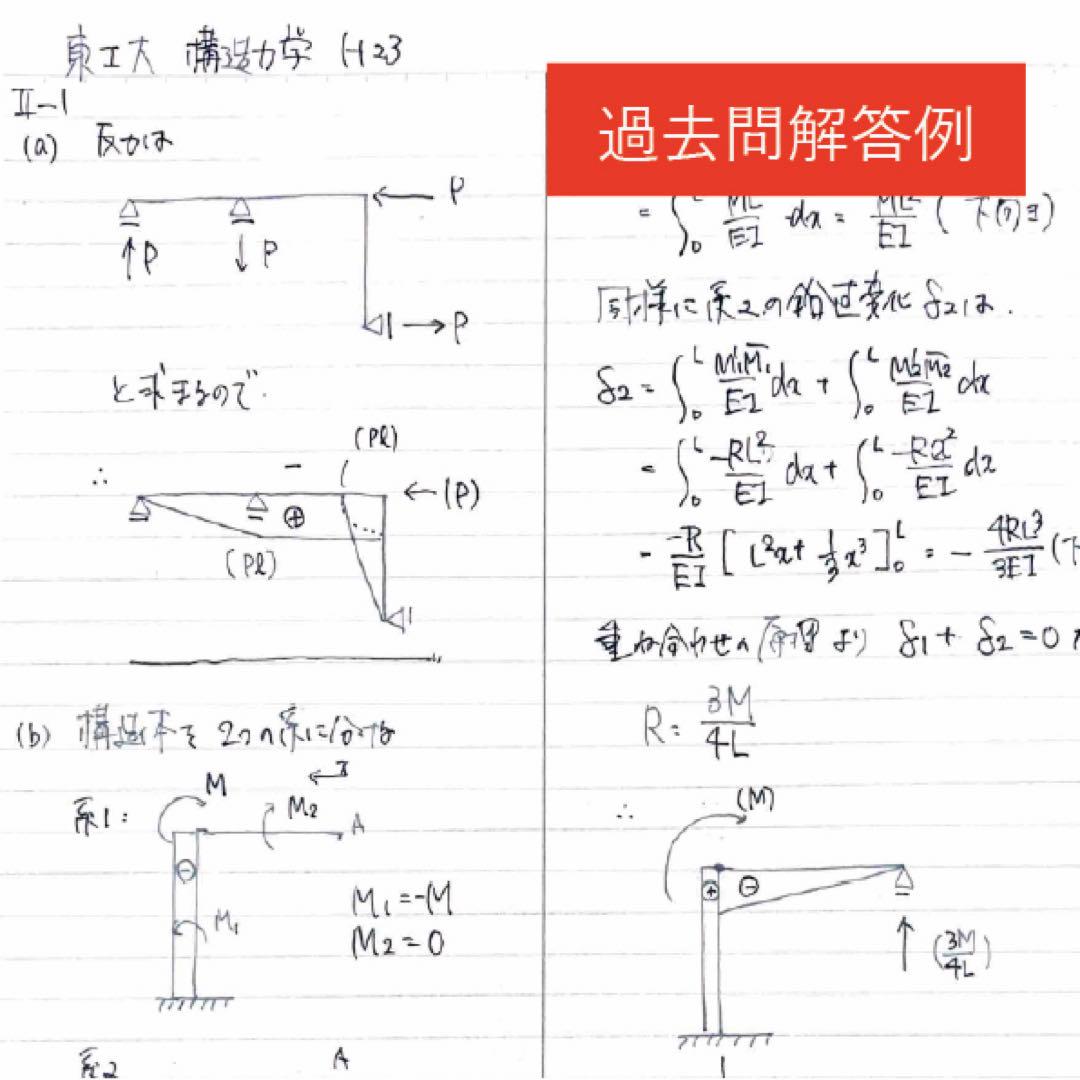 東工大 構造力学 H23
II-1
(a) 反力は
P
P
P
P
と求まるので.
∴
(Pl)
−
(P)
⊕
(Pl)
(b) 構造体を2つの系に分ける
系1:
M
M2
x
A
⊖
M1
M1=-M
M2=0
系2
A
過去問解答例
= ∫0^L ML/EI dx = ML²/EI (下向き)
同様に系2の鉛直変化 δ2は.
δ2 = ∫0^L M1'M̄1/EI dx + ∫0^L M2'M̄2/EI dx
= ∫0^L -RL²/EI dx + ∫0^L -Rx²/EI dx
= -R/EI [L²x + 1/3 x³]0^L = - 4RL³/3EI (下
重ね合わせの原理より δ1 + δ2 = 0
R = 3M/4L
∴
(M)
⊕
⊖
(3M/4L)